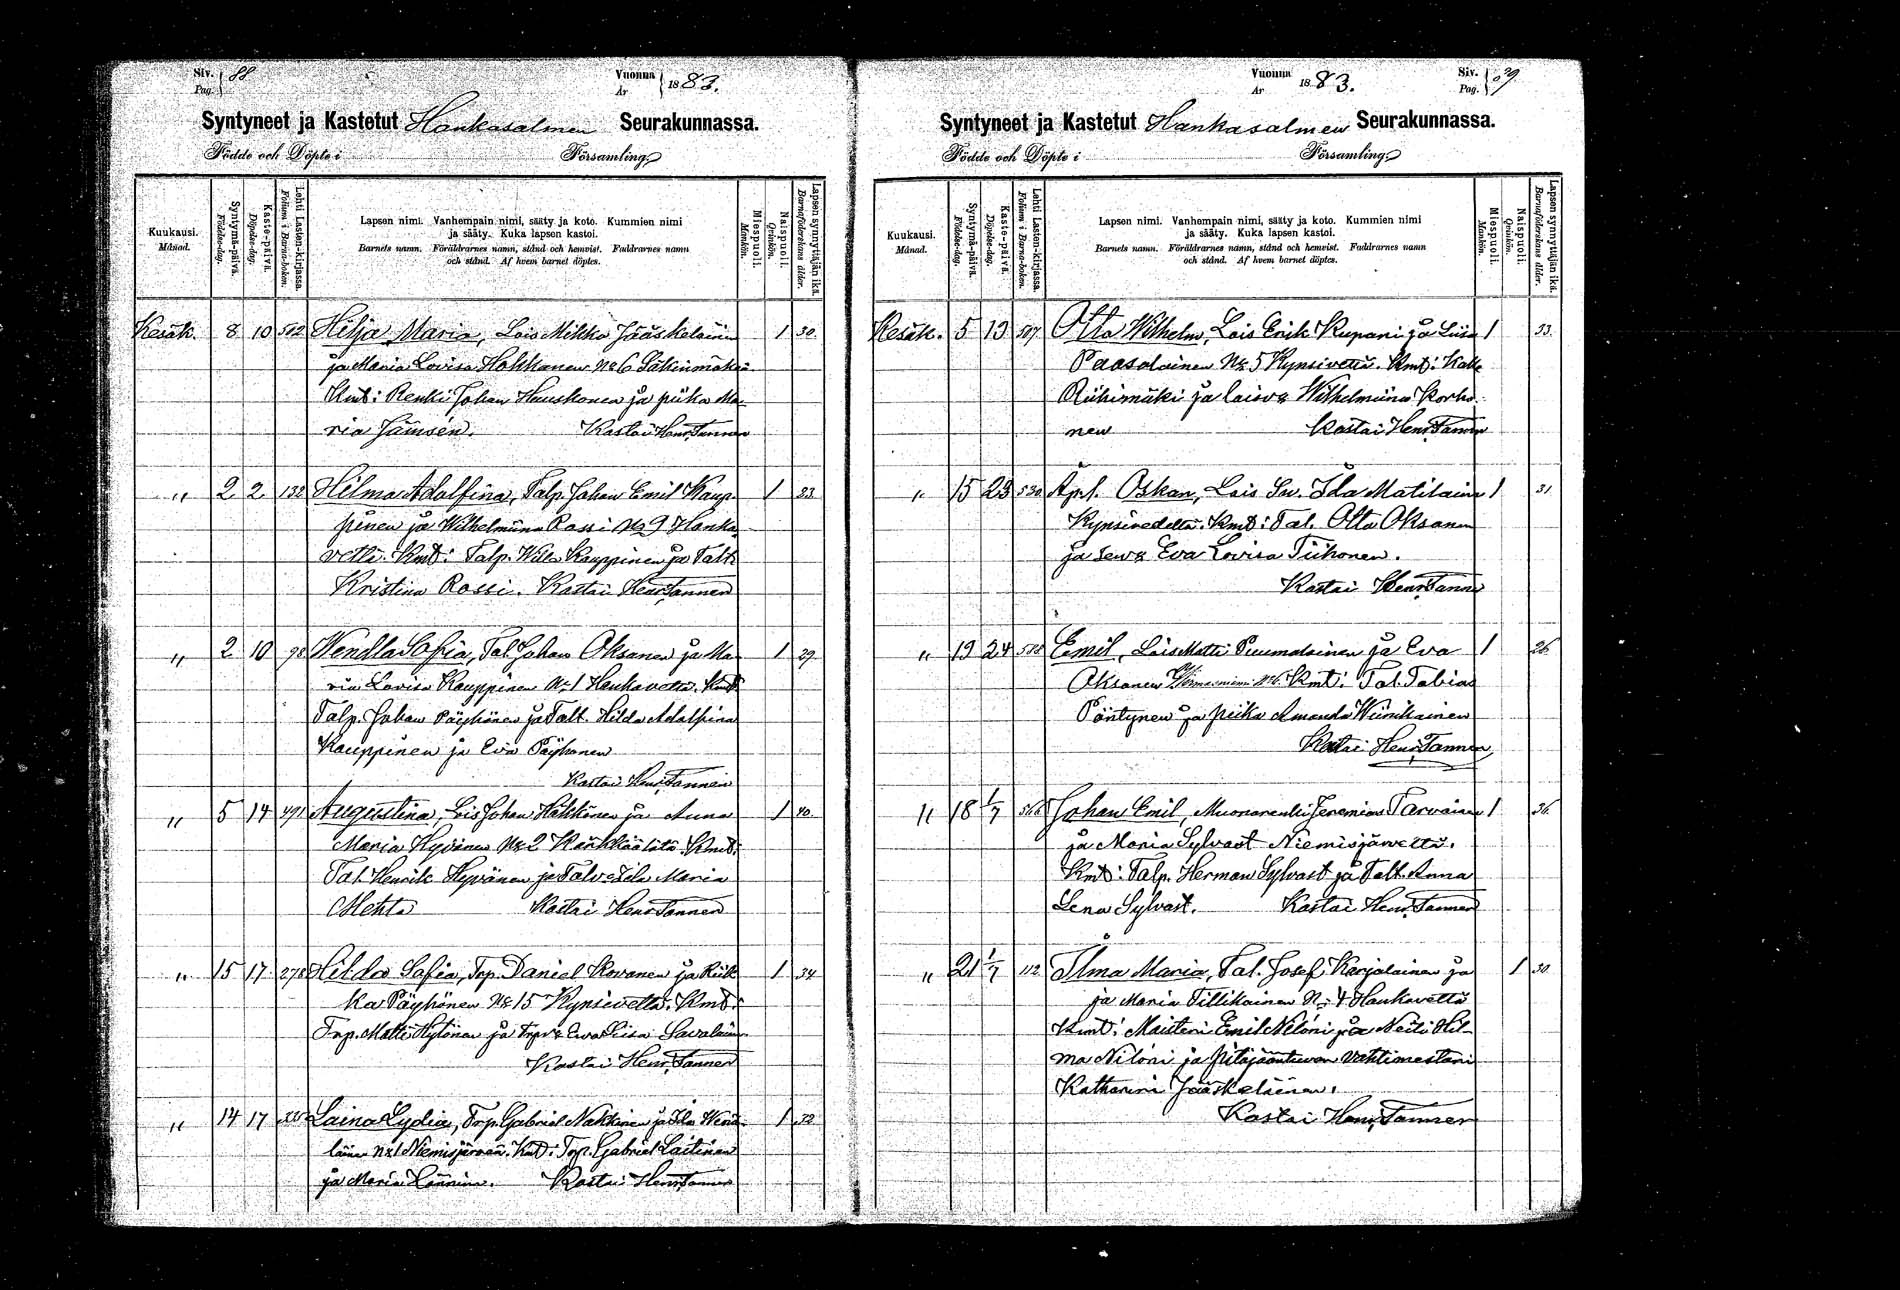 Siv. 88
Pag.
Vuonna 1883.
År
Syntyneet ja Kastetut Hankasalmen Seurakunnassa.
Födde och Döpte i Församling
Kuukausi.
Månad.
Syntymä-päivä.
Födelse-dag.
Kaste-päivä.
Döpelse-dag.
Lehti Lasten-kirjassa.
Folium i Barna-boken.
Lapsen nimi. Vanhempain nimi, sääty ja koto. Kummien nimi
ja sääty. Kuka lapsen kastoi.
Barnets namn. Föräldrarnes namn, stånd och hemvist. Faddrarnes namn
och stånd. Af hvem barnet döptes.
Miespuoli.
Mankön.
Naispuoli.
Qvinkön.
Lapsen synnyttäjän ikä.
Barnaföderskans ålder.
Kesäk. 8 10 512 Hilja Maria, Lois Mikko Jääskeläinen 1 30.
ja Maria Lovisa Hokkanen No 6 Säkinmäki
Kmt: Renki Johan Hauskonen ja piika Ma-
ria Jämsén. Kastoi Henr. Tanner
" 2 2 132 Hilma Adolfina, Talp. Johan Emil Kaup- 1 23
pinen ja Wilhelmina Rossi No 9 Hanka
vetti. Kmt: Talp. Wille Kauppinen ja Talt:
Kristina Rossi. Kastoi Henr. Tanner
" 2 10 98 Wendla Sofia, Tal. Johan Oksanen ja Ma- 1 29
ria Lovisa Kauppinen No 1 Hankavettä. Kmt:
Talp. Johan Päyhönen ja Talt. Hilda Adolfina
Kauppinen ja Eva Päyhönen
Kastoi Henr. Tanner
" 5 14 491 Augustina, Lois Johan Häkkönen ja Anna 1 40.
Maria Hyvönen No 2 Kärkkäälätä. Kmt:
Tal. Henrik Hyvönen ja Talv: Ida Maria
Mehto Kastoi Henr Tanner
" 15 17 278 Hilda Sofia, Trp. Daniel Kovanen ja Riik- 1 34
ka Päyhönen No 15 Kynsivettä. Kmt:
Trp. Matti Hytönen ja Trpv: Eva Liisa Savolainen
Kastoi Henr. Tanner
" 14 17 335 Laina Lydia, Trp. Gabriel Nokkinen ja Ida Wenä- 1 32
läinen No 1 Niemisjärven. Kmt: Trp. Gabriel Laitinen
ja Maria Kastoi Henr. Tanner
Vuonna 1883.
År
Siv. 89
Pag.
Syntyneet ja Kastetut Hankasalmen Seurakunnassa.
Födde och Döpte i Församling
Kuukausi.
Månad.
Syntymä-päivä.
Födelse-dag.
Kaste-päivä.
Döpelse-dag.
Lehti Lasten-kirjassa.
Folium i Barna-boken.
Lapsen nimi. Vanhempain nimi, sääty ja koto. Kummien nimi
ja sääty. Kuka lapsen kastoi.
Barnets namn. Föräldrarnes namn, stånd och hemvist. Faddrarnes namn
och stånd. Af hvem barnet döptes.
Miespuoli.
Mankön.
Naispuoli.
Qvinkön.
Lapsen synnyttäjän ikä.
Barnaföderskans ålder.
Kesäk. 5 13 507. Otto Wilhelm, Lois Erik Kupari ja Liisa 1 33.
Paasolainen No 5 Kynsivettä. Kmt: Kalle
Riihimäki ja loisv: Wilhelmiina Korho-
nen Kastoi Henr. Tanner
" 15 23 530. Äpl. Oskar, Lois Sv. Ida Matilainen 1 31
Kynsivedeltä. Kmt: Tal. Otto Oksanen
ja sew: Eva Lovisa Tiihonen.
Kastoi Henr. Tanner
" 19 24 518 Emil, Lois Matti Puumalainen ja Eva 1 26
Oksanen No 6. Kmt: Tal. Tobias
Pöntynen ja piika Amanda Wiinikainen
Kastoi Henr. Tanner
" 18 1/7 566 Johan Emil, Muonarenki Jeremias Tarvainen 1 36.
ja Maria Sylvast Niemisjärveltä.
Kmt: Talp. Herman Sylvast ja Talt. Anna
Lena Sylvast. Kastoi Henr. Tanner
" 21 1/7 112. Ilma Maria, Tal. Josef Karjalainen ja 1 30.
ja Maria Tillikainen No 4 Hankavettä
Kmt: Maisteri Emil Nilóni ja Neiti Hil-
ma Nilóni ja pitäjäntuvan vahtimestari
Katharini Jääskeläinen.
Kastoi Henr. Tanner